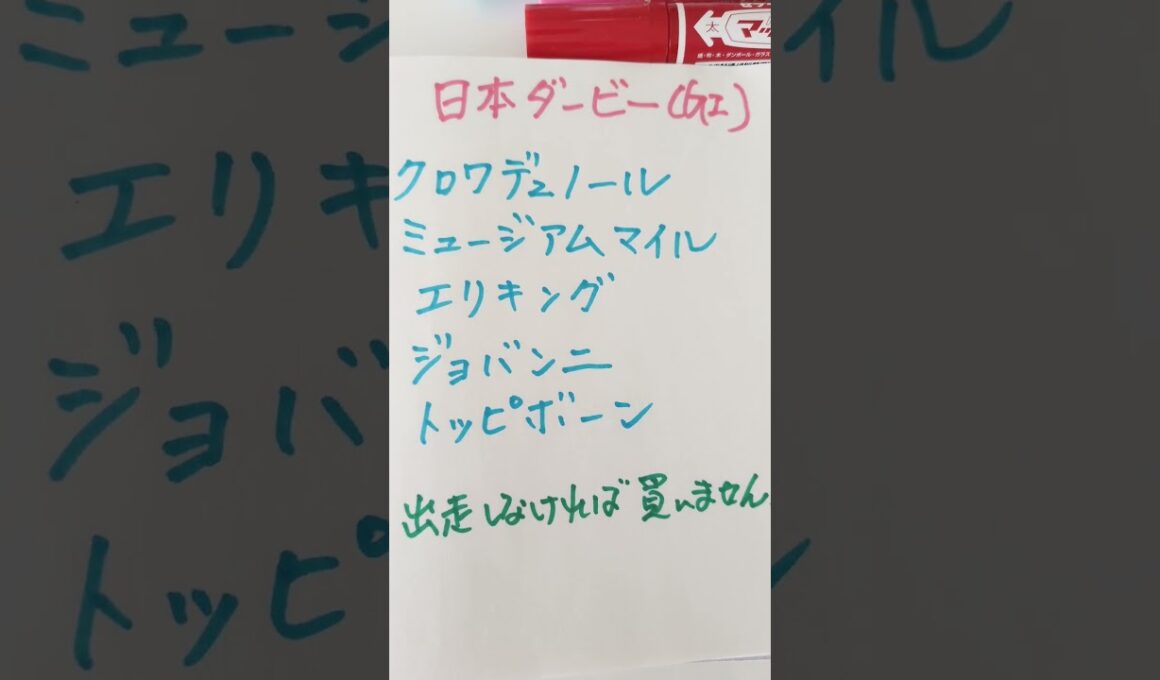 太
日本ダービー(GI)
クロワデュノール
ミュージアムマイル
エリキング
ジョバンニ
トッピボーン
出走しなければ買いません